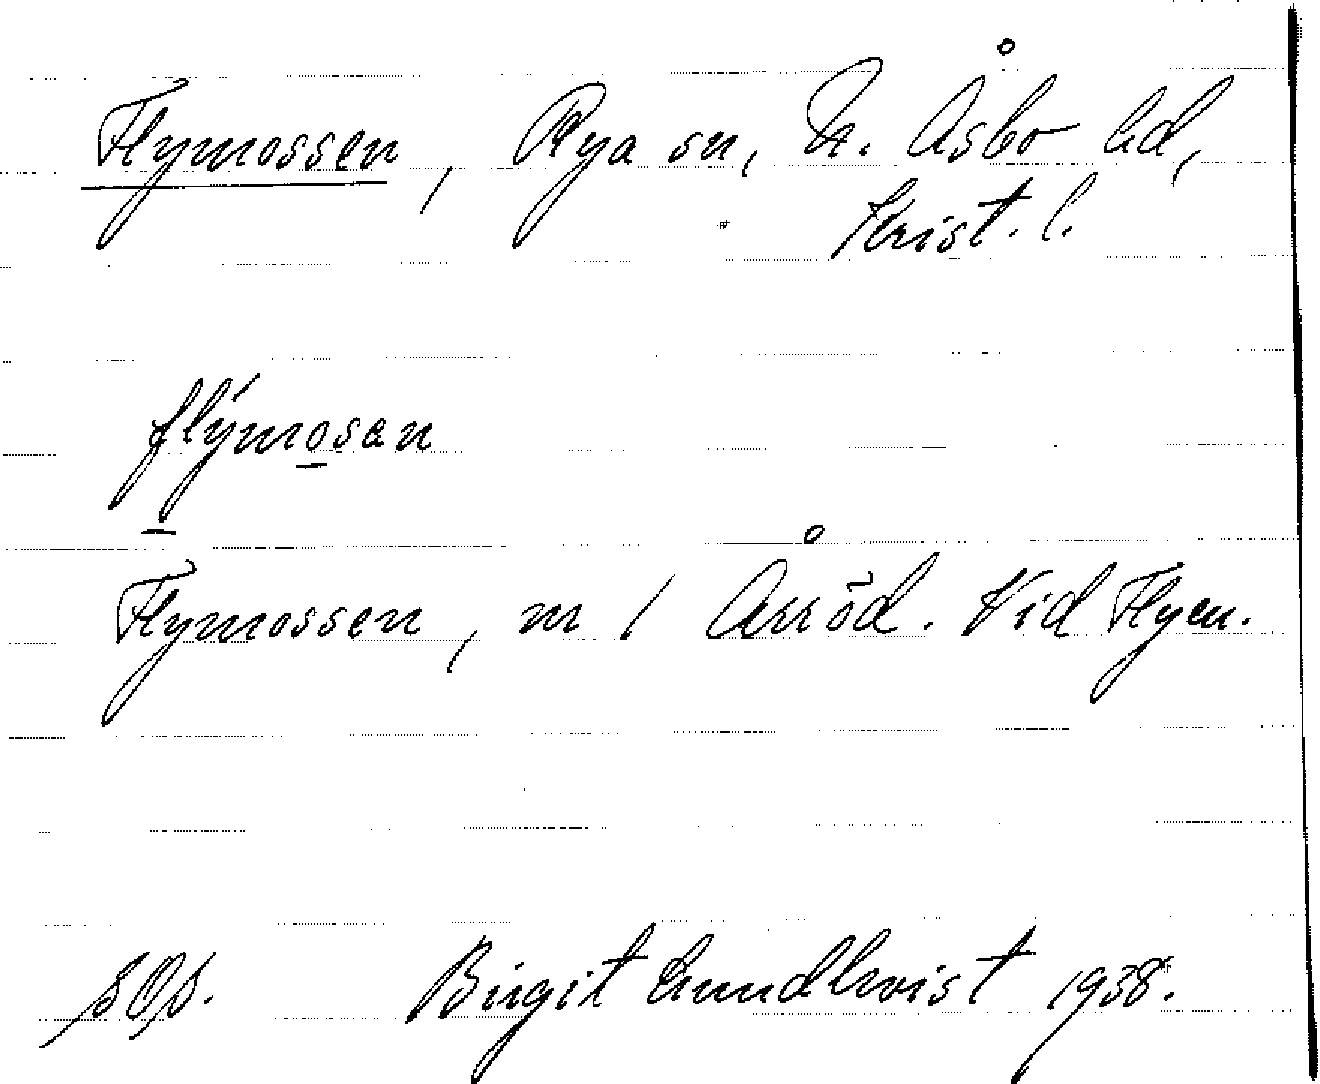 Flymossen, Rya sn, N. Åsbo hd,
Krist. l.
flýmosan
Flymossen, m / Årröd. Vid Flyen.
Birgit Lundkvist 1938.